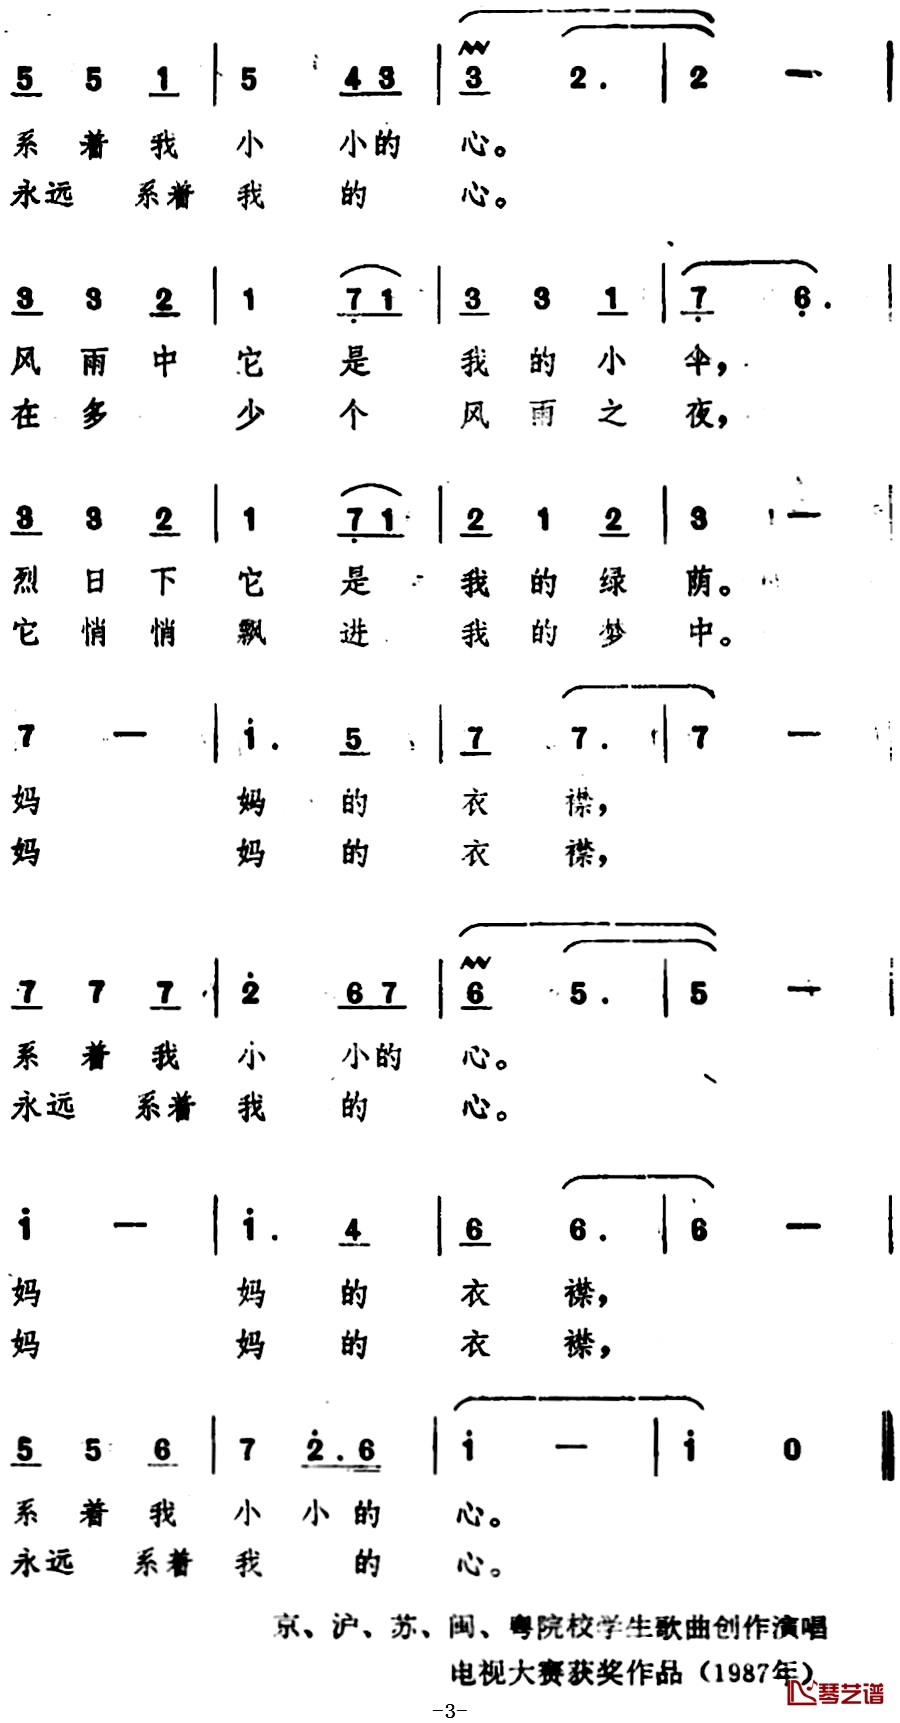 5 5 1 | 5 4 3 | 3 2. | 2 — |
系着我小小的心。
永远系着我的心。
3 3 2 | 1 7 1 | 3 3 1 | 7 6. |
风雨中它是我的小伞，
在多少个风雨之夜，
3 3 2 | 1 7 1 | 2 1 2 | 3 — |
烈日下它是我的绿荫。
它悄悄飘进我的梦中。
7 — | i. 5 | 7 7. | 7 — |
妈妈的衣襟，
妈妈的衣襟，
7 7 7 | 2 6 7 | 6 5. | 5 — |
系着我小小的心。
永远系着我的心。
i — | i. 4 | 6 6. | 6 — |
妈妈的衣襟，
妈妈的衣襟，
5 5 6 | 7 2. 6 | i — | i 0 ‖
系着我小小的心。
永远系着我的心。
京、沪、苏、闽、粤院校学生歌曲创作演唱
电视大赛获奖作品（1987年）
琴艺谱
-3-